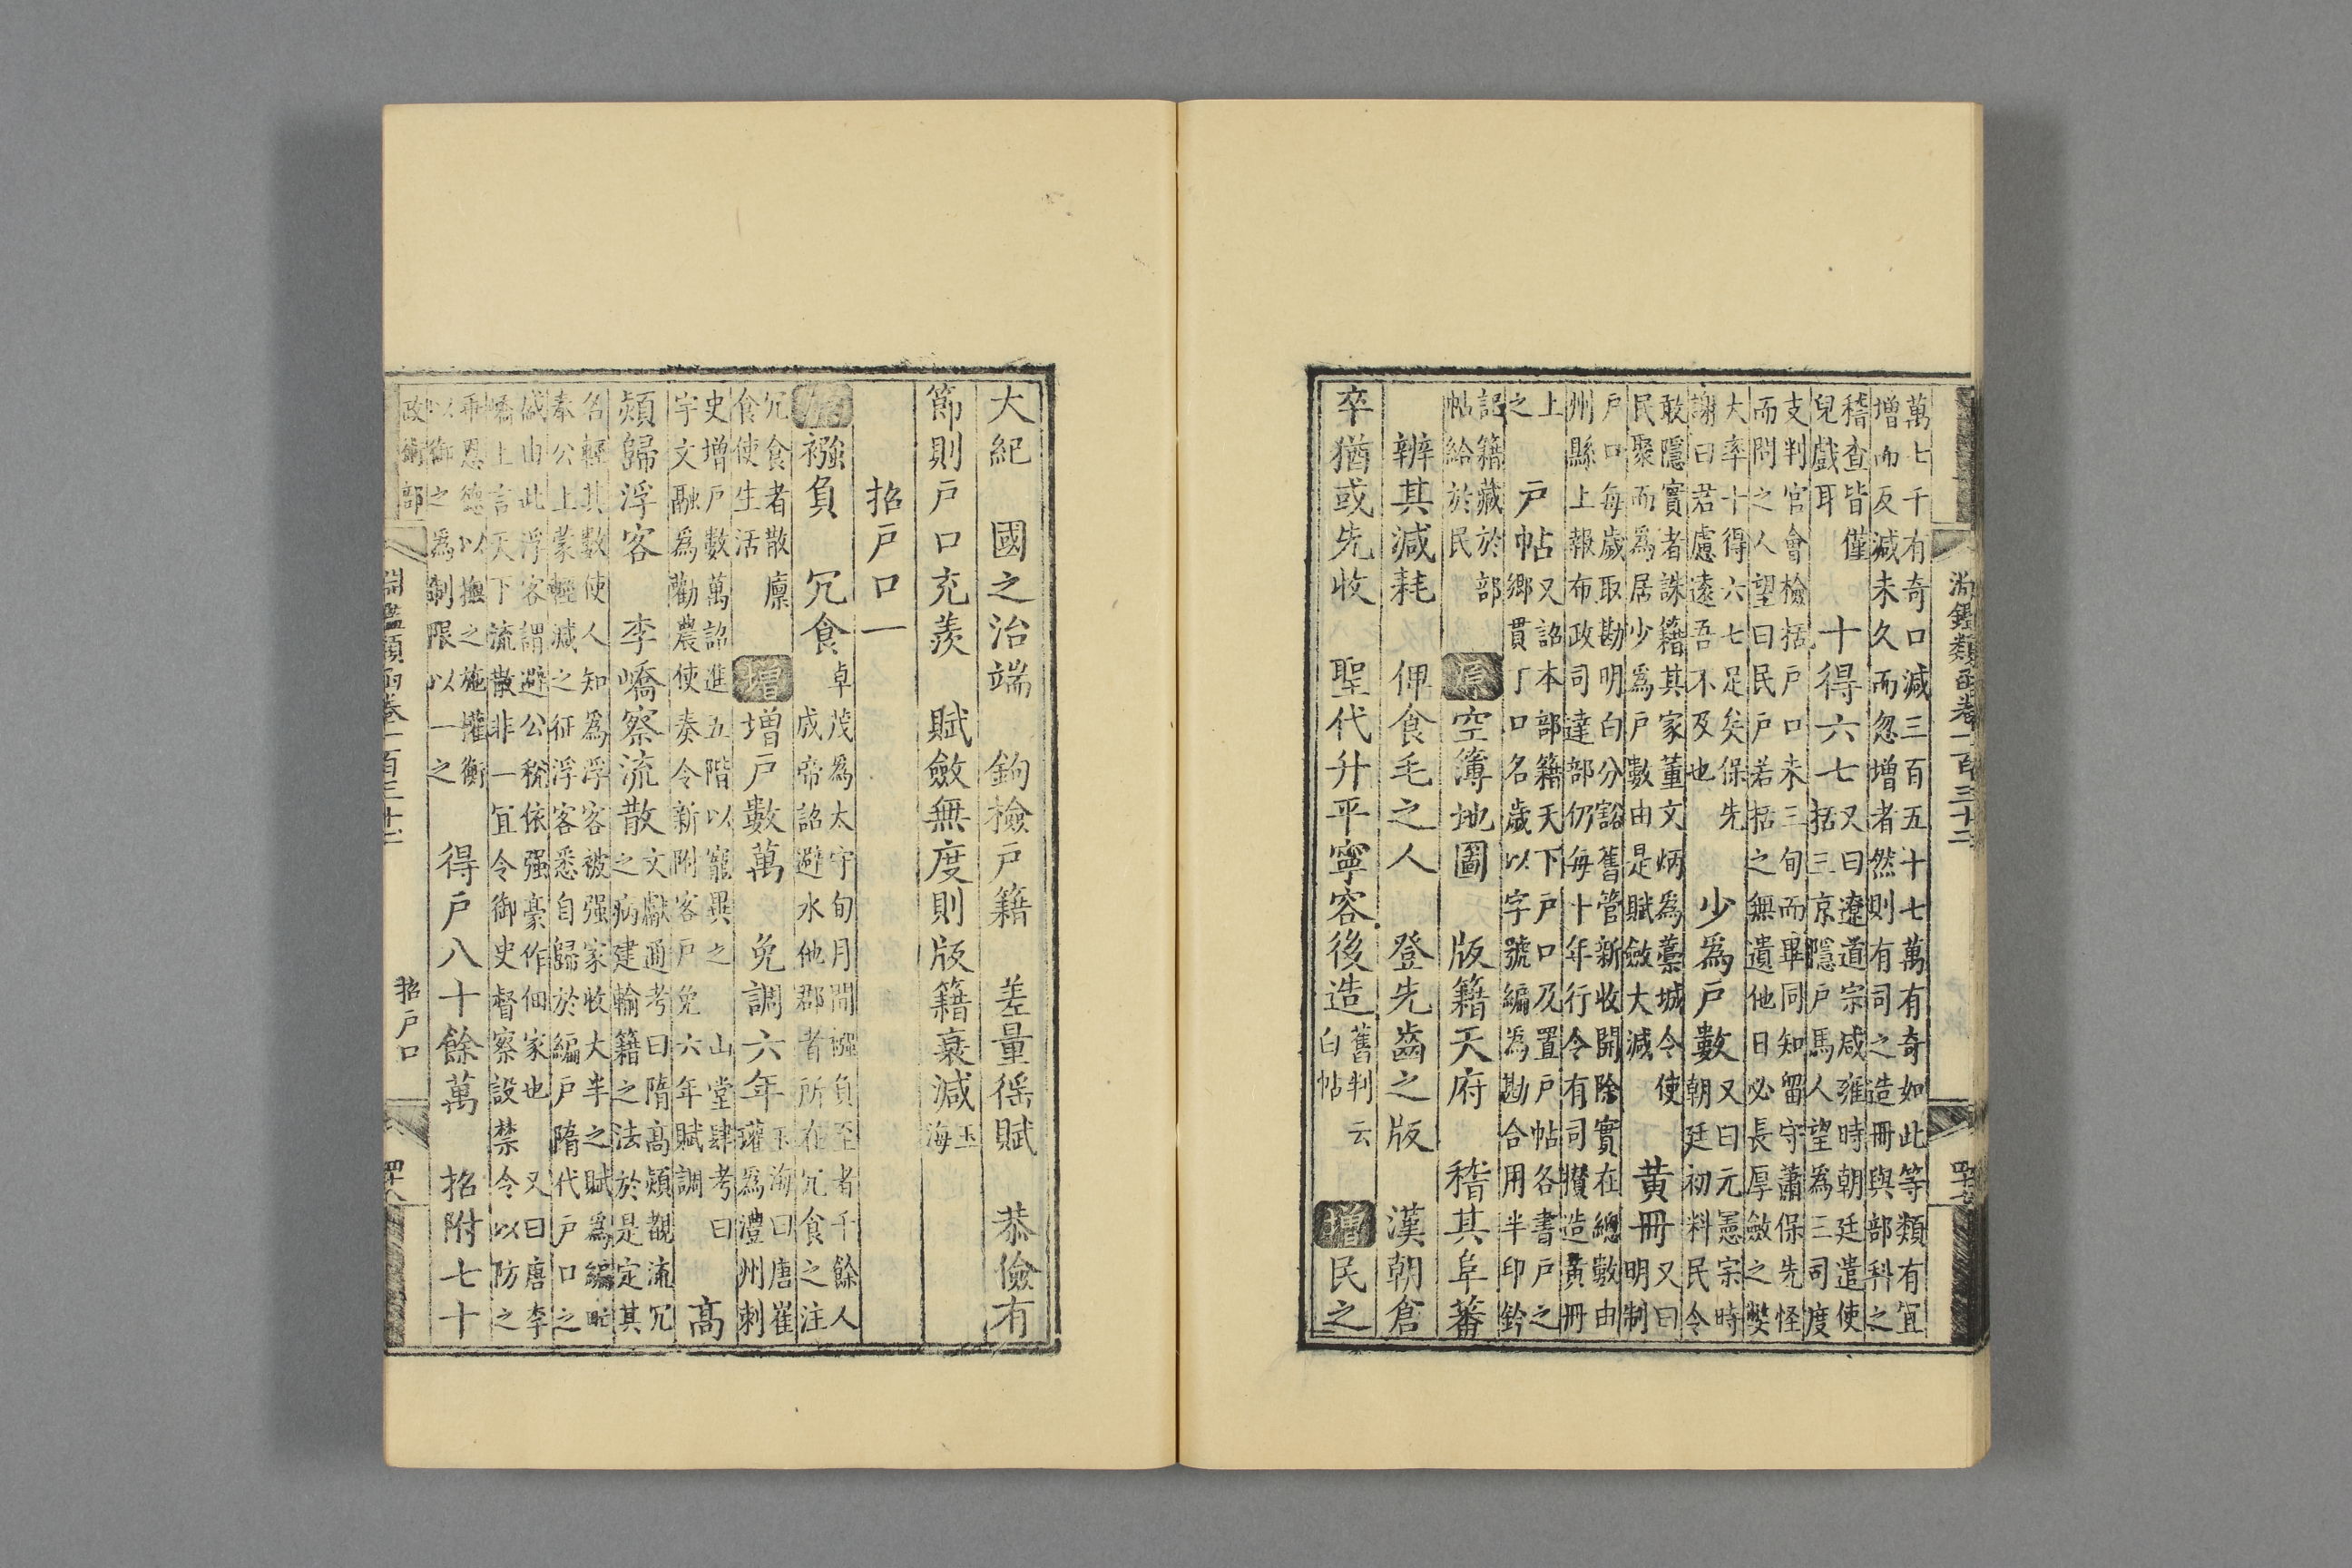 淵鑑類函卷一百三十二
萬七千有奇口減三百五十七萬有奇如此等類有宜
增而反減未久而忽增者然則有司之造冊與部科之
稽查皆僅
兒戲耳
十得六七
又曰遼道宗咸雍時朝廷遣使
括三京隱戶馬人望為三司度
支判官會檢括戶口未三旬而畢同知留守蕭保先怪
而問之人望曰民戶若括之無遺他日必長厚斂之弊
大率十得六七足矣保先
謝曰若慮遠吾不及也
少為戶數
又曰元憲宗時
朝廷初料民令
敢隱實者誅籍其家董文炳為藁城令使
民聚而為居少為戶數由是賦斂大減
黃冊
又曰
明制
戶口每歲取勘明白分豁舊管新收開除實在總數由
州縣上報布政司達部仍每十年行令有司攢造黃冊
上
之
戶帖
又詔本部籍天下戶口及置戶帖各書戶之
鄉貫丁口名歲以字號編為勘合用半印鈐
記籍藏於部
帖給於民
原
空簿地圖
版籍天府
稽其阜蕃
辨其減耗
俾食毛之人
登先齒之版
漢朝倉
卒猶或先收
聖代升平寧容後造
舊判云
白帖
增
民之
大紀
國之治端
鉤檢戶籍
差量徭賦
恭儉有
節則戶口充羨
賦斂無度則版籍衰減
玉
海
招戶口一
原
襁負
冗食
卓茂為太守旬月間襁負至者千餘人
成帝詔避水他郡者所在冗食之注
冗食者散廩
食使生活
增
增戶數萬
免調六年
玉海曰唐崔
瓘為澧州刺
史增戶數萬詔進五階以寵異之
宇文融為勸農使奏令新附客戶免六年賦調
山堂肆考曰
高
熲歸浮客
李嶠察流散
文獻通考曰隋高熲覩流冗
之病建輸籍之法於是定其
名輕其數使人知為浮客被强家收大半之賦為編甿
奉公上蒙輕減之征浮客悉自歸於編戶隋代戶口之
盛由此浮客謂避公稅依强豪作佃家也
又曰唐李
嶠上言天下流散非一宜令御史督察設禁令以防之
垂恩德以撫之施權衡
以御之為制限以一之
得戶八十餘萬
招附七十
政衛部
淵鑑類函卷一百三十二
招戶口